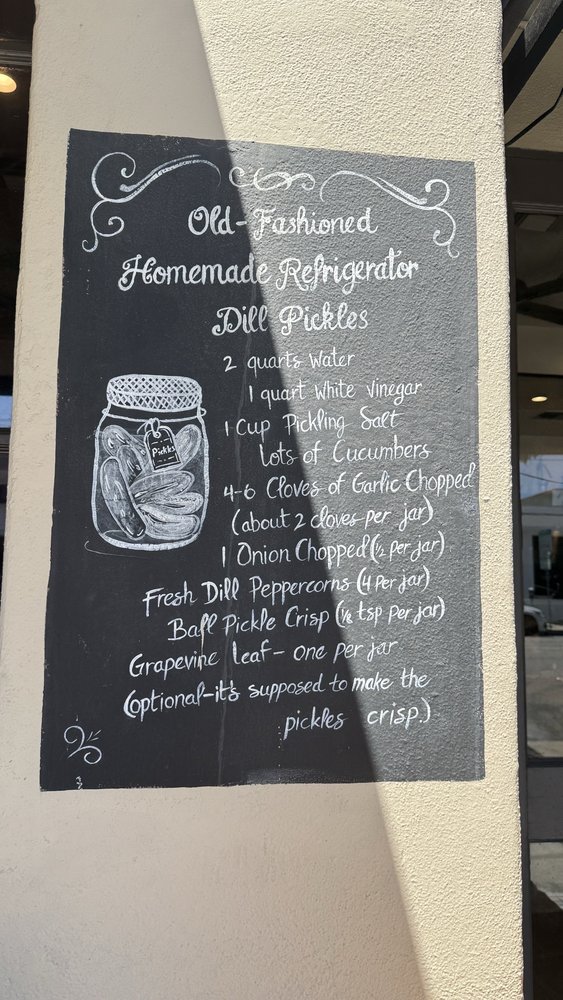 Old-Fashioned
Homemade Refrigerator
Dill Pickles
2 quarts water
1 quart white vinegar
1 Cup Pickling Salt
Lots of Cucumbers
4-6 Cloves of Garlic Chopped
(about 2 cloves per jar)
1 Onion Chopped (½ per jar)
Fresh Dill Peppercorns (4 per jar)
Ball Pickle Crisp (⅛ tsp per jar)
Grapevine leaf- one per jar
(optional-it's supposed to make the
pickles crisp.)
Pickles